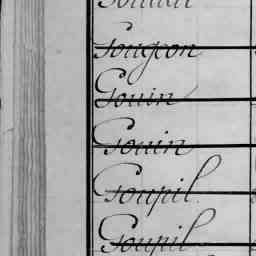 Gougeon
Gouin
Gouin
Goupil
Goupil